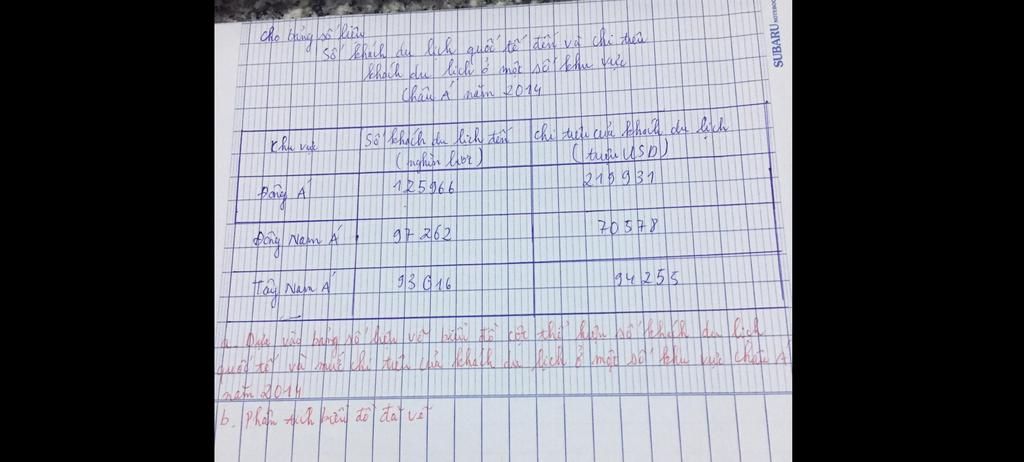 cho bảng số liệu
Số khách du lịch quốc tế đến và chi tiêu
khách du lịch ở một số khu vực
Châu Á năm 2014
SUBARU NOTEBOOK
Khu vực Số khách du lịch đến Chi tiêu của khách du lịch
(nghìn lượt) (triệu USD)
Đông Á 125966 219931
Đông Nam Á 97262 70578
Tây Nam Á 93016 94255
a. Dựa vào bảng số liệu vẽ biểu đồ cột thể hiện số khách du lịch
quốc tế và mức chi tiêu của khách du lịch ở một số khu vực Châu Á
năm 2014
b. Phân tích biểu đồ đã vẽ